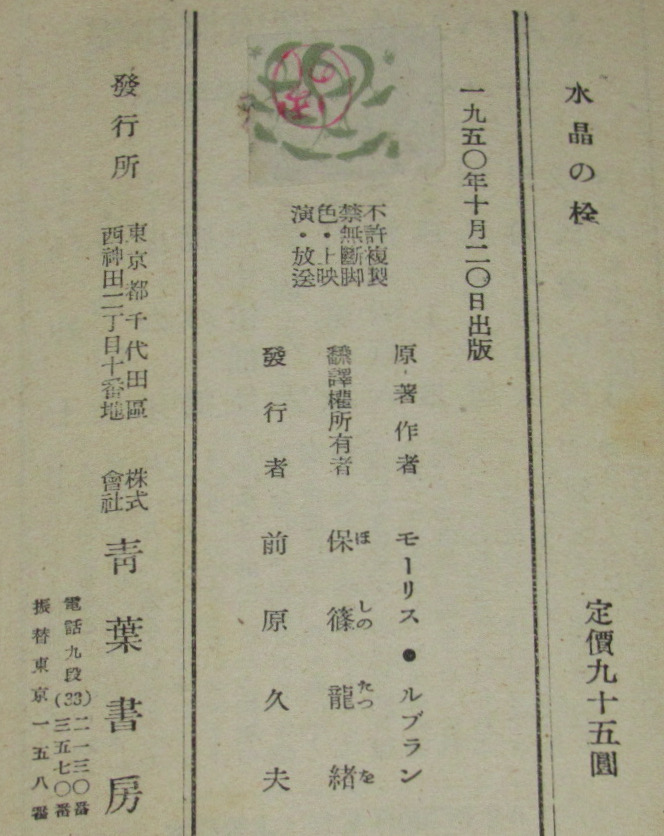 水晶の栓
定價九十五圓
一九五〇年十月二〇日出版
不許複製
禁無斷脚
色・上映
演・放送
原著作者 モーリス・ルブラン
飜譯權所有者 保篠龍緒
ほ しの たつ を
發行者 前原久夫
發行所
東京都千代田區
西神田二丁目十番地
株式
會社
靑葉書房
電話九段(33)二一三〇番
三五七〇番
振替東京一五八番